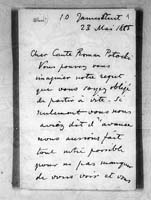 10 James Street
23 Mai 1885
Cher Comte Roman Potocki
Vous pouvez vous
imaginer notre regret
que vous soyez obligé
de partir si vite. Si
seulement vous nous
aviez dit d'avance
nous aurions fait
tout notre possible
pour ne pas manquer
de vous voir et vous